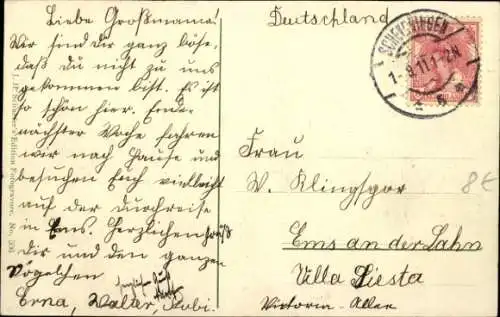 Liebe Großmama!
Wir sind dir ganz böse,
daß du nicht zu uns
gekommen bist. Es ist
so schön hier. Ende
nächster Woche fahren
wir nach Hause und
besuchen Euch vielleicht
auf der Durchreise
in Ems. Herzlichen Gruß
Dir und den ganzen
Vögelchen
Erna, Walter, Bubi.
Deutschland
SCHEVENINGEN
1-9.11.1-2N
Frau
W. Klingspor
8€
Ems an der Lahn
Villa Siesta
Victoria-Allee